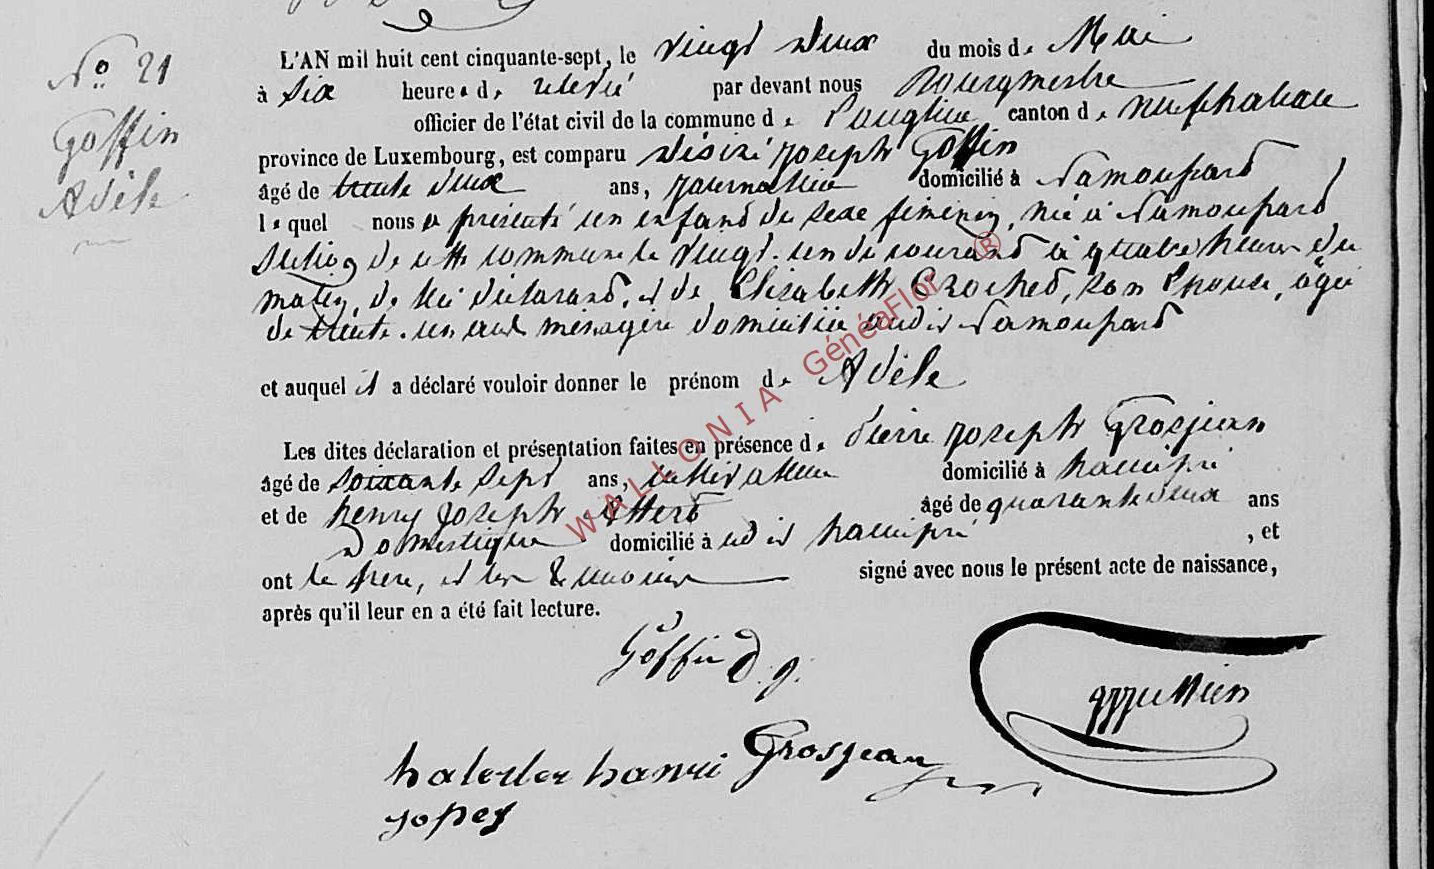 N° 21
Goffin
Adèle
L'AN mil huit cent cinquante-sept, le vingt deux du mois de Mai
à six heures de relevé par devant nous Bourgmestre
officier de l'état civil de la commune de Longlier canton de Neufchateau
province de Luxembourg, est comparu Désiré joseph Goffin
âgé de trente deux ans, journalier domicilié à Lamoupard
lequel nous a présenté un enfant du sexe féminin, né à Lamoupard
section de cette commune le vingt-un du courant à quatre heures du
matin, de lui déclarant, et de Elisabeth Crochet, son épouse, âgée
de trente-un ans ménagère domiciliée audit Lamoupard
et auquel il a déclaré vouloir donner le prénom de Adèle
Les dites déclaration et présentation faites en présence de Pierre joseph Grosjean
âgé de soixante sept ans, cultivateur domicilié à hamipré
et de henry joseph âgé de quarante deux ans
Domestique domicilié à udit hamipré, et
ont le père, et les témoins signé avec nous le présent acte de naissance,
après qu'il leur en a été fait lecture.
Goffin D. j.
Grosjean
hanri
WALLONIA GénéaFlor ®